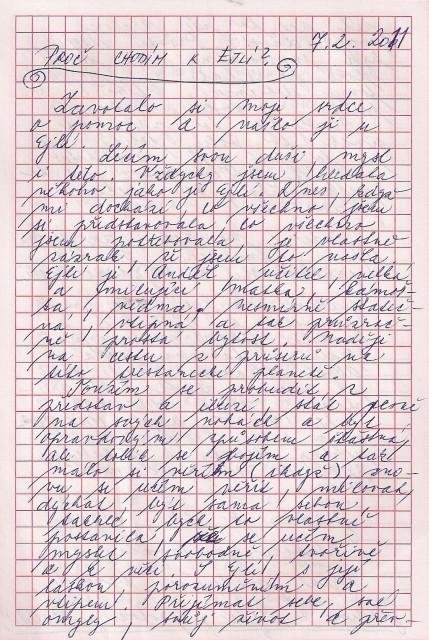 7.2.2011
PROČ CHODÍM K EJLI?
Zavolalo si moje srdce
o pomoc a našlo ji u
Ejli.
Léčím svou duši, mysl
i tělo. Vždycky jsem hledala
někoho jako je Ejli. Dnes, když
mi dochází co všechno jsem
si představovala, co všechno
jsem potřebovala, je vlastně
zázrak, že jsem to našla.
Ejli je Anděl, učitel, velká
a milující matka, kamoš-
ka, vědma, nesmírně stateč-
ná, vtipná a tak průzrač-
ně prostá bytost. Nadějí
na cestu z na
této planetě.
Toužím se probudit z
představ a iluzí, stát pevně
na svých nohách a být
opravdovým způsobem šťastná,
ale tolik se bojím a tak
málo si věřím (ikdyž) zno-
vu se učím věřit, milovat,
dýchat, být sama sebou.
bych to vlastně
postavila, se učím
myslet svobodně, tvořivě
a k věci. S Ejli, s její
láskou, porozuměním a
vtipem. Přijímat sebe, své
omyly, svůj život a přev-